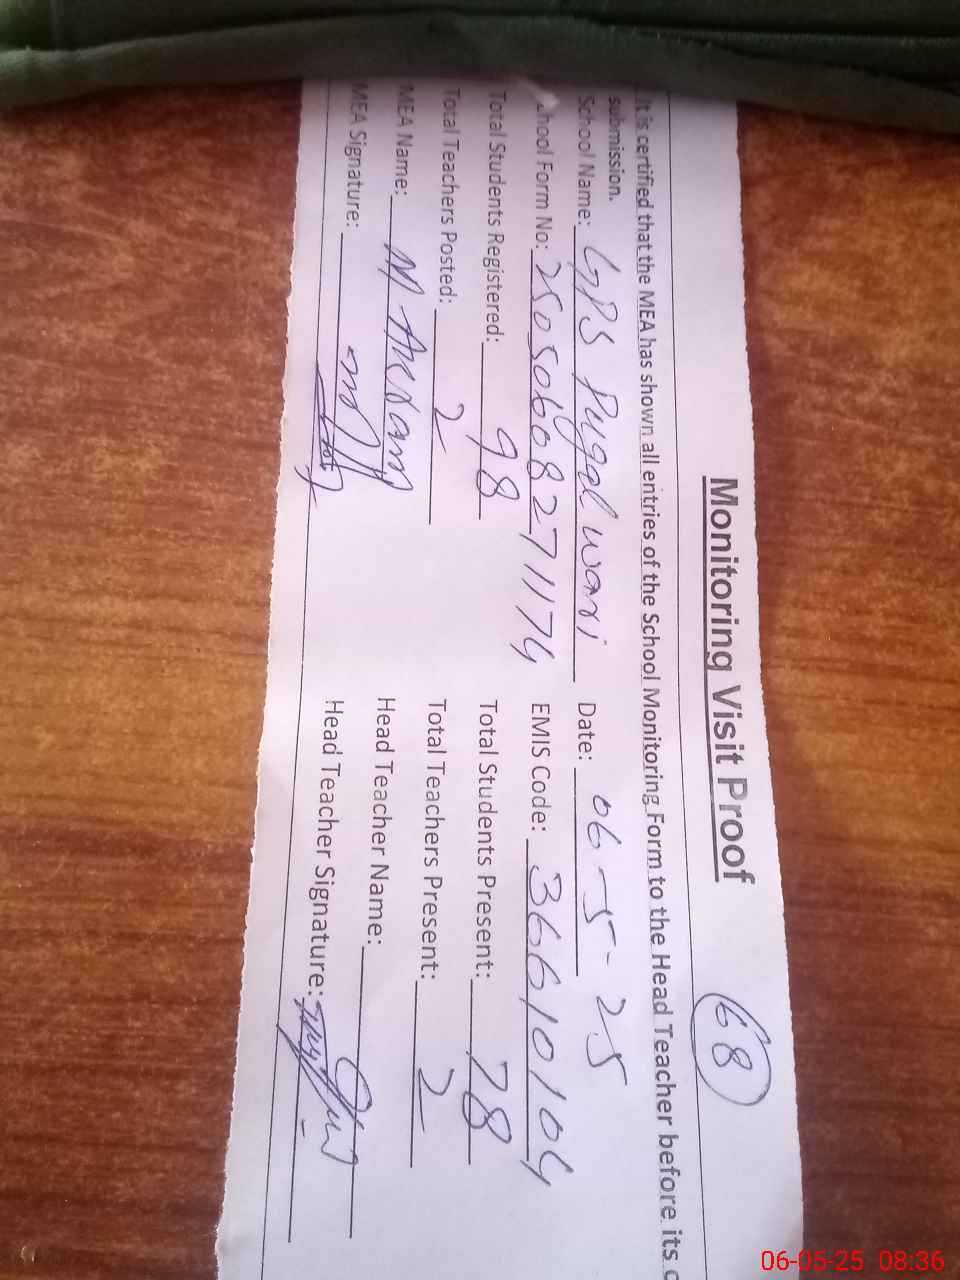 Monitoring Visit Proof
68
It is certified that the MEA has shown all entries of the School Monitoring Form to the Head Teacher before its
submission.
School Name: GPS Pugal wari Date: 06-5-25
hool Form No: 25050608271174 EMIS Code: 36610104
Total Students Registered: 98 Total Students Present: 78
Total Teachers Posted: 2 Total Teachers Present: 2
MEA Name: M Akram Head Teacher Name:
MEA Signature: Head Teacher Signature:
06-05-25 08:36